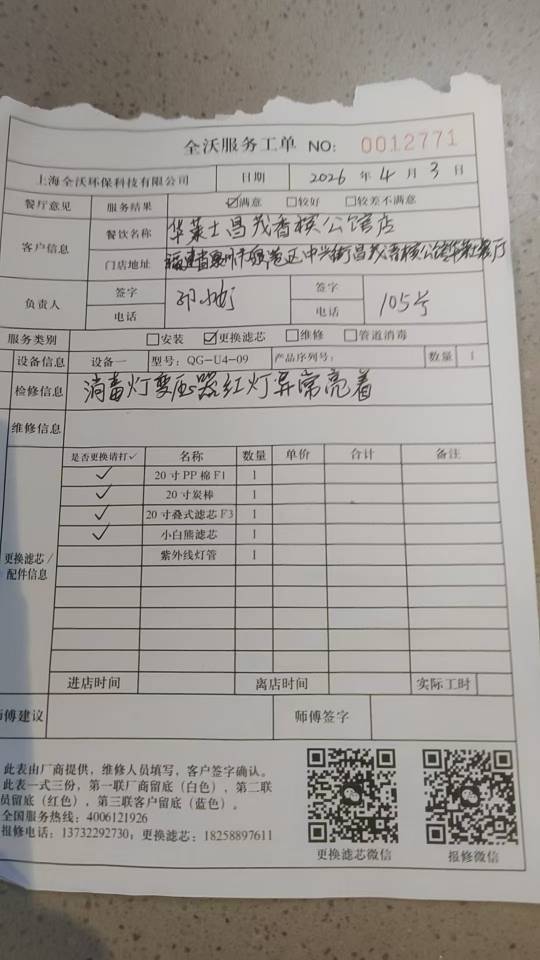 全沃服务工单 NO: 0012771
上海全沃环保科技有限公司 日期 2026 年 4 月 3 日
餐厅意见 服务结果 ☑满意 □较好 □较差不满意
客户信息 餐饮名称 华莱士昌茂香槟公馆店
门店地址 福建省泉州市 中兴街昌茂香槟公馆华莱士餐厅
负责人 签字 签字
电话 电话 105号
服务类别 □安装 ☑更换滤芯 □维修 □管道消毒
设备信息 设备一 型号: QG-U4-09 产品序列号: 数量 1
检修信息 消毒灯变压器红灯异常亮着
维修信息
是否更换请打✓ 名称 数量 单价 合计 备注
✓ 20寸PP棉F1 1
✓ 20寸炭棒 1
✓ 20寸叠式滤芯F3 1
✓ 小白熊滤芯 1
紫外线灯管 1
更换滤芯/
配件信息
进店时间 离店时间 实际工时
师傅建议 师傅签字
此表由厂商提供，维修人员填写，客户签字确认。
此表一式三份，第一联厂商留底（白色），第二联
员留底（红色），第三联客户留底（蓝色）。
全国服务热线: 4006121926
报修电话: 13732292730; 更换滤芯: 18258897611
更换滤芯微信 报修微信